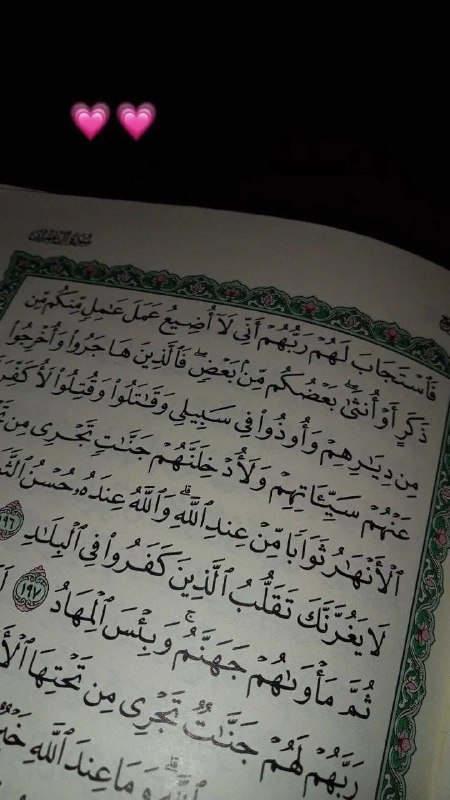 فَٱسْتَجَابَ لَهُمْ رَبُّهُمْ أَنِّى لَآ أُضِيعُ عَمَلَ عَٰمِلٍ مِّنكُم مِّن
ذَكَرٍ أَوْ أُنثَىٰ ۖ بَعْضُكُم مِّنۢ بَعْضٍ ۖ فَٱلَّذِينَ هَاجَرُوا۟ وَأُخْرِجُوا۟
مِن دِيَٰرِهِمْ وَأُوذُوا۟ فِى سَبِيلِى وَقَٰتَلُوا۟ وَقُتِلُوا۟ لَأُكَفِّرَ
عَنْهُمْ سَيِّـَٔاتِهِمْ وَلَأُدْخِلَنَّهُمْ جَنَّٰتٍ تَجْرِى مِن
ٱلْأَنْهَٰرُ ثَوَابًا مِّنْ عِندِ ٱللَّهِ ۗ وَٱللَّهُ عِندَهُۥ حُسْنُ ٱلثَّ
لَا يَغُرَّنَّكَ تَقَلُّبُ ٱلَّذِينَ كَفَرُوا۟ فِى ٱلْبِلَٰدِ ١٩٦
ثُمَّ مَأْوَىٰهُمْ جَهَنَّمُ ۚ وَبِئْسَ ٱلْمِهَادُ ١٩٧
رَبَّهُمْ لَهُمْ جَنَّٰتٌ تَجْرِى مِن تَحْتِهَا ٱلْأَ
ٱللَّهِ ۗ وَمَا عِندَ ٱللَّهِ خَيْرٌ